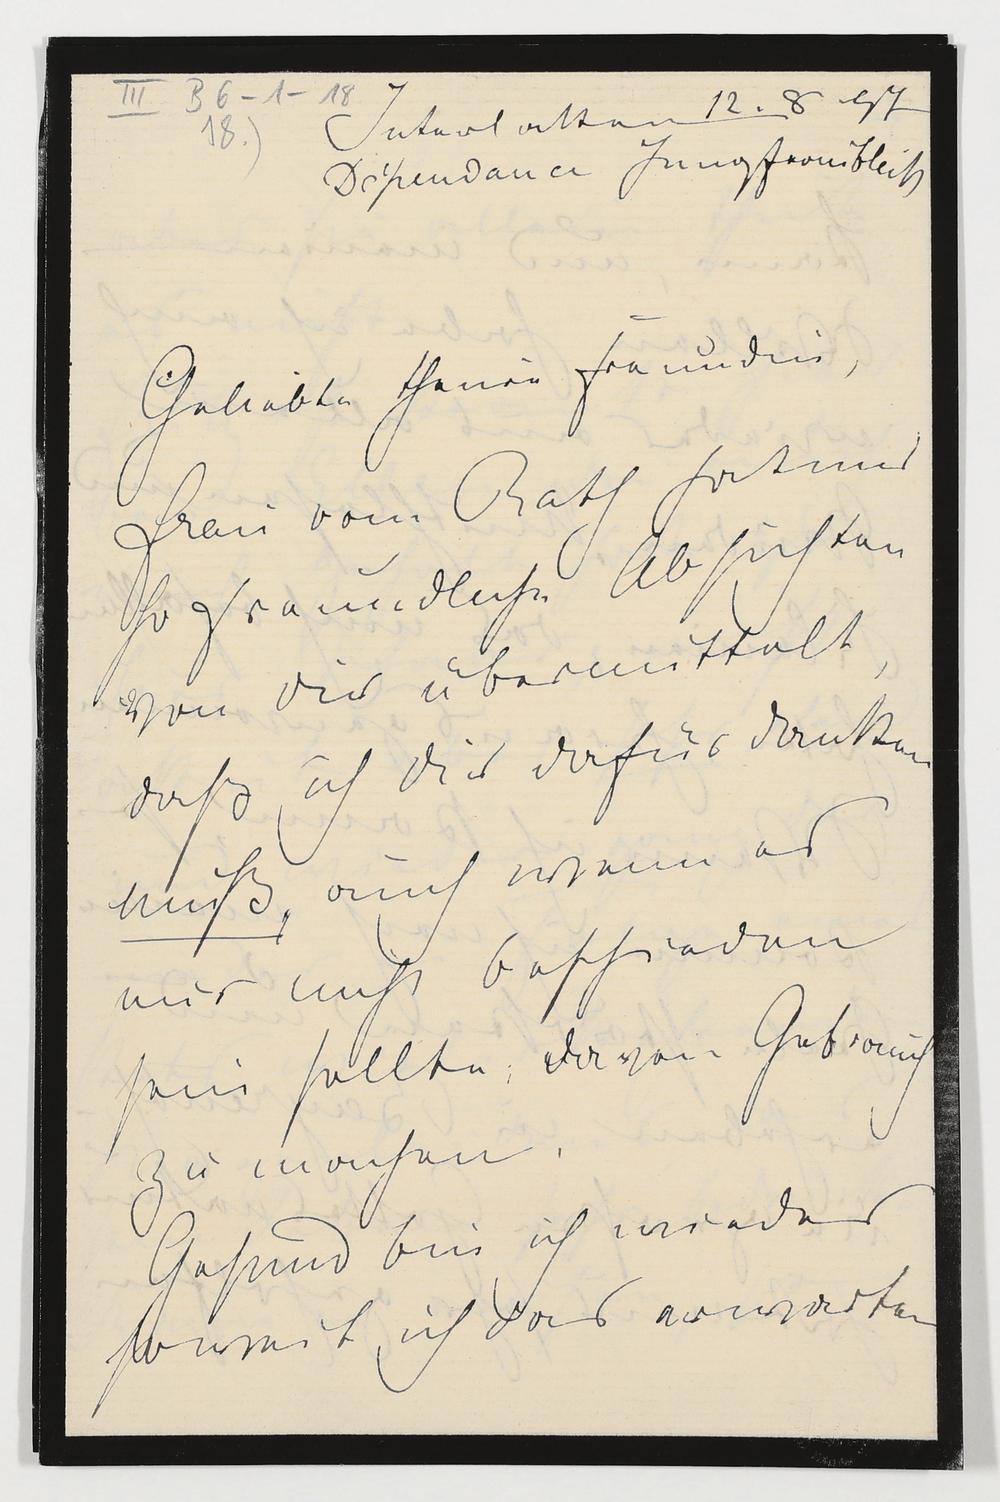 III B 6-1-18
18.)
Interlakken 12. 8 97
Dépendance Jungfraublick
Geliebte theure Freundin,
Frau vom Rath hat mir
so freundliche Absichten
von dir übermittelt,
daß ich dir dafür danken
muß, auch wenn es
mir nicht beschieden
sein sollte, davon Gebrauch
zu machen.
Gesund bin ich wieder
soweit ich das erwarten